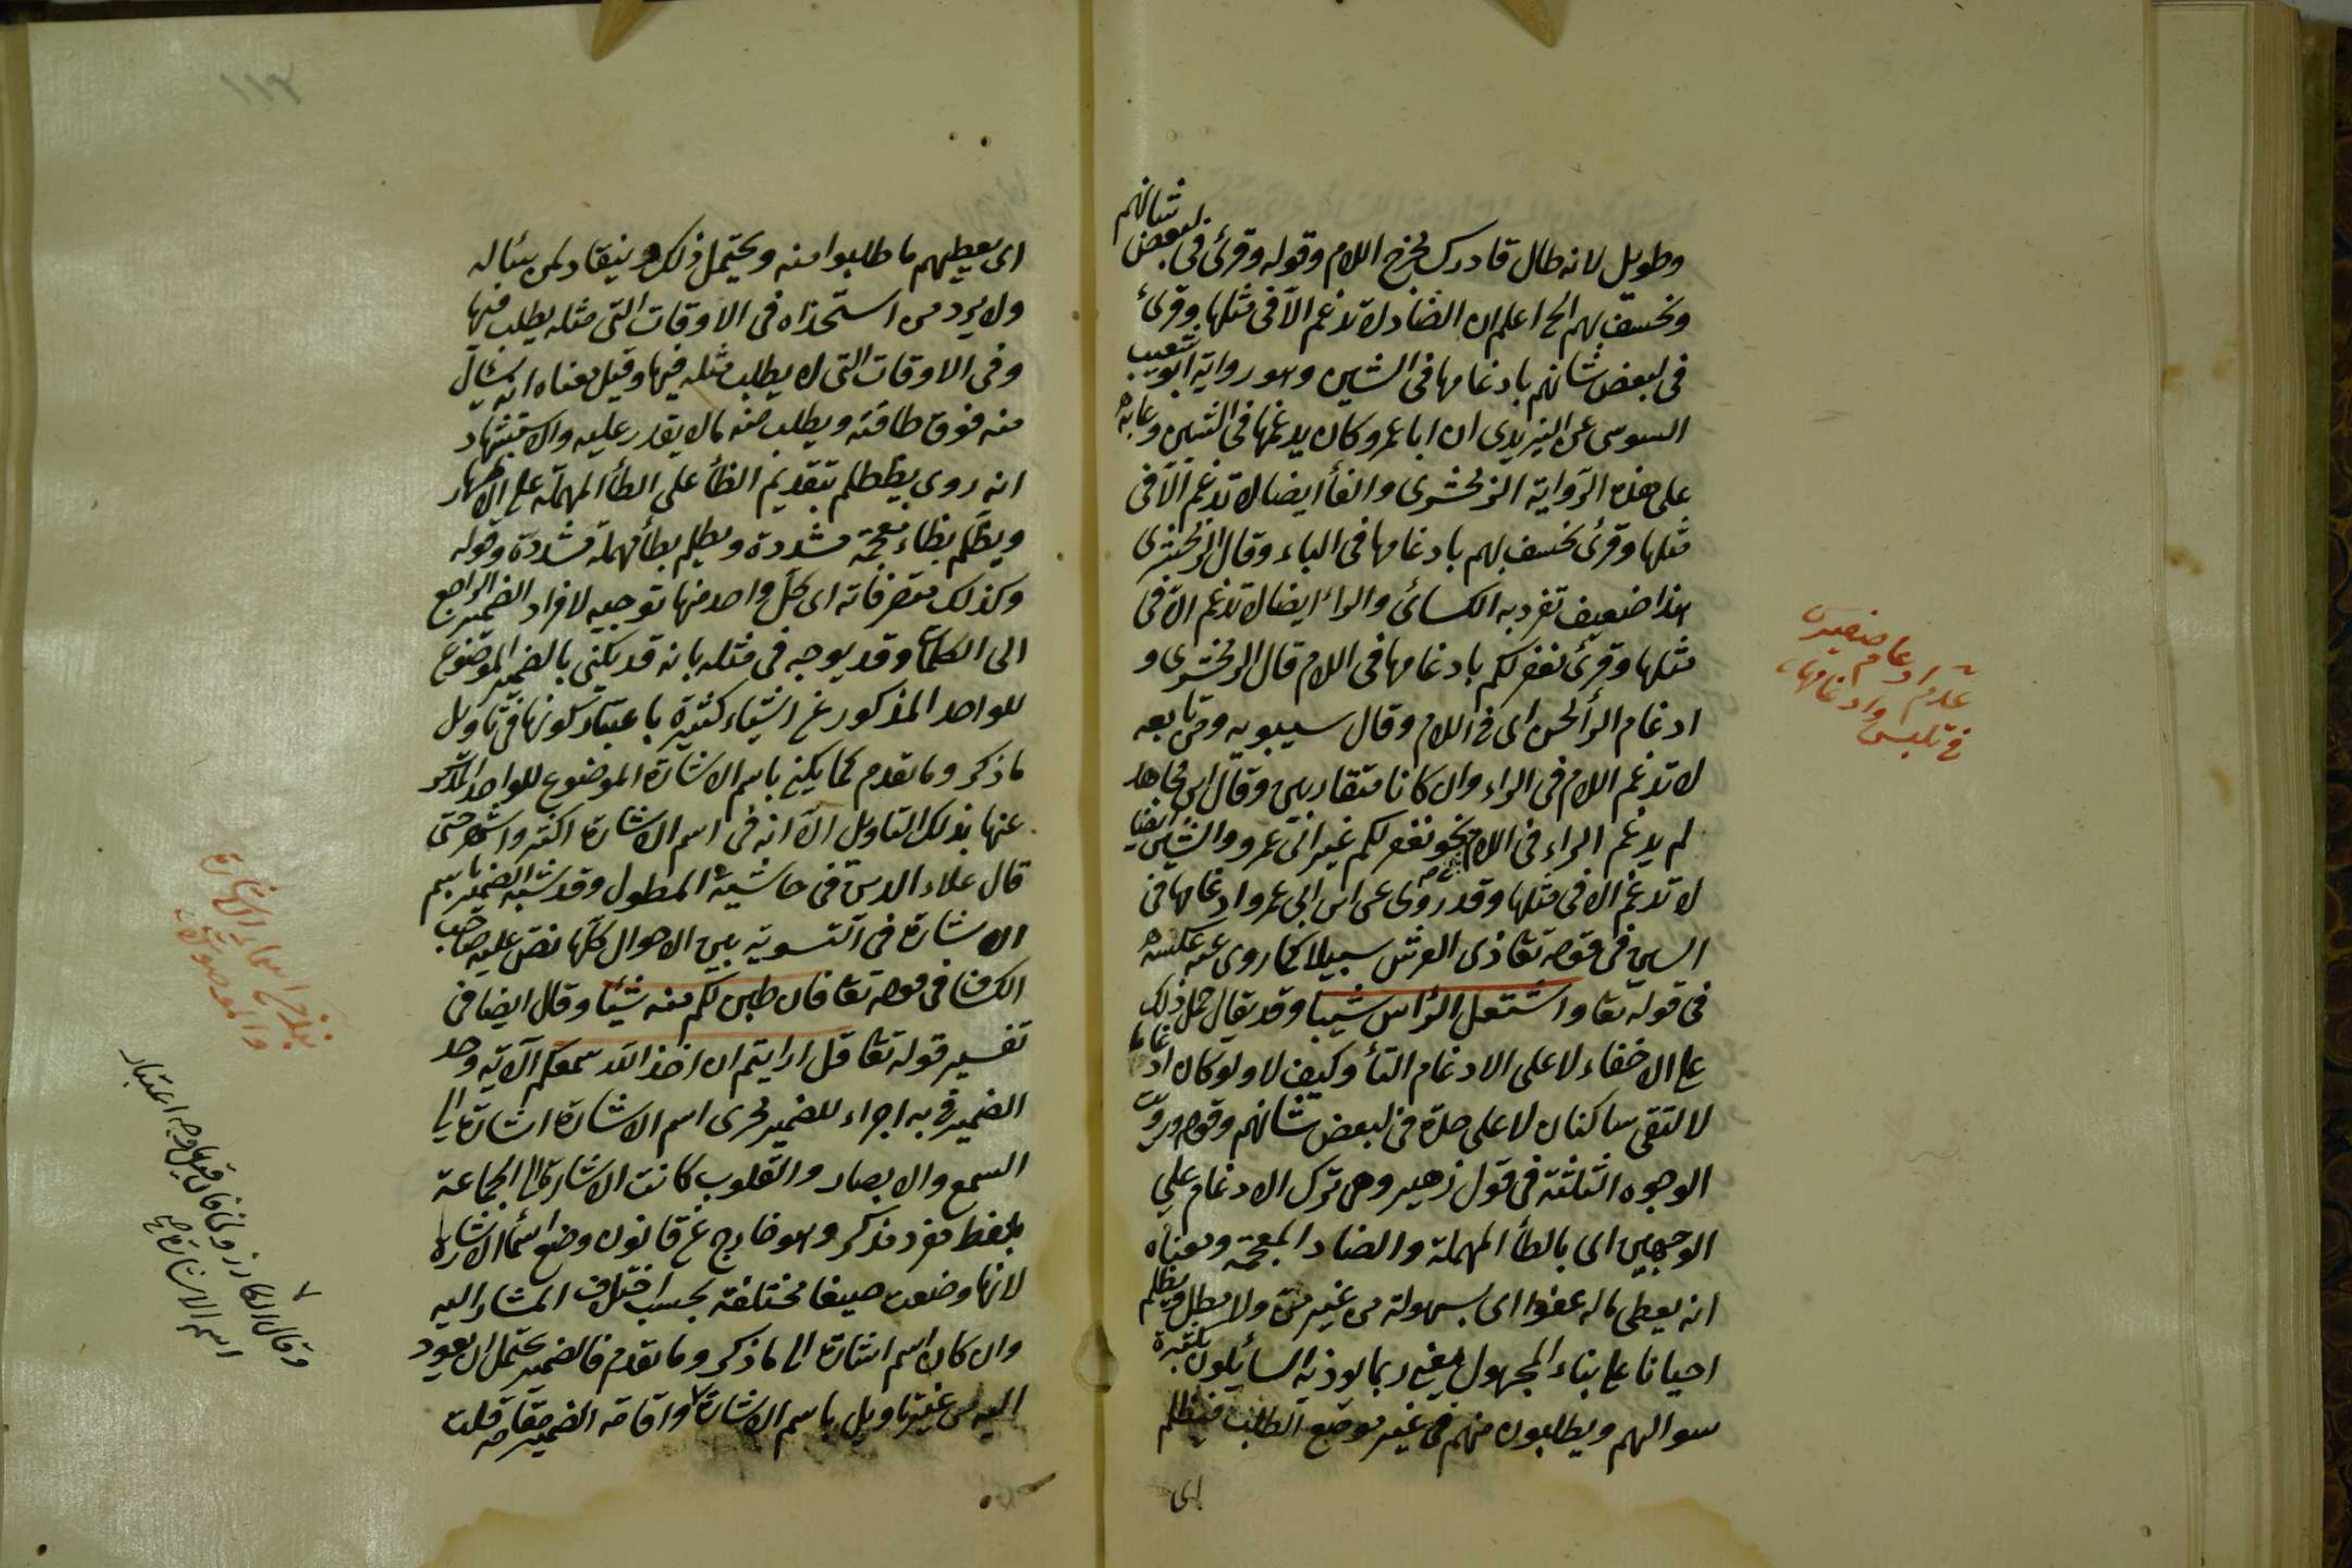 وطويل لانه طال قادرك لمخرج اللام وقوله وقرئ في لبعض شانهم
ونخسف بهم الخ اعلم ان الضاد لا تدغم الا في مثلها وقرئ
في لبعض شانهم بادغامها في الشين وهو رواية ابو شعيب
السوسي عن اليزيدي ان ابا عمرو كان يدغمها في الشين وعابه
على هذه الرواية الزمخشري والفأ ايضا لا تدغم الا في
مثلها وقرئ نخسف بهم بادغامها في الباء وقال الزمخشري
هذا ضعيف تفرد به الكسائي والراء ايضا لا تدغم الا في
مثلها وقرئ نغفر لكم بادغامها في اللام قال الزمخشري و
ادغام الرأ لحن اى في اللام وقال سيبويه ومن تابعه
لا تدغم اللام في الراء وان كانا متقاربين وقال ابن مجاهد
لم يدغم الراء في اللام نحو نغفر لكم غير ابى عمرو والشين ايضا
لا تدغم الا في مثلها وقد روى عن ابى عمرو ادغامها في
السين في قوله تعا ذى العرش سبيلا كما روى عنه عكسه
في قوله تعا واشتعل الرأس شيبا وقد يقال حمل ذلك
على الاخفاء لا على الادغام التأ وكيف لا ولو كان ادغاما
لالتقى ساكنان لا على حدة في لبعض شانهم وقوله ورويت
الوجوه الثلثة في قول زهير وهى ترك الادغام على
الوجهين اى بالطأ المهملة والضاد المعجمة ومعناه
انه يعطى ماله عفوا اى بسهولة من غير من ولا مطل ويظلم
احيانا على بناء المجهول يعنى ربما يوذيه السائلون بكثرة
سوالهم ويطلبون منهم في غير موضع الطلب فيظلم
اى
عدم ادغام ضم
في تلبس وادغامها
اى يعطيهم ما طلبوا منه ويحتمل ذلك وينقاد لمن يسأله
ولا يرد من استجداه في الاوقات التى مثله يطلب فيها
وفي الاوقات التى لا يطلب مثله فيها وقيل معناه انه يسأل
منه فوق طاقته ويطلب منه مالا يقدر عليه والاستشهاد
انه روى يظطلم بتقديم الظأ على الطأ المهملة على الاظهار
ويظلم بظاء معجمة مشددة ويطلم بطأ مهملة مشددة وقوله
وكذلك متصرفاته اى كل واحد منها توجيه لافراد الضمير الراجع
الى الكلمات وقد يوجه في مثله بانه قد يكنى بالضمير الموضوع
للواحد المذكور عن اشياء كثيرة باعتبار كونها في تاويل
ما ذكر وما تقدم كما يكنى باسم الاشارة الموضوع للواحد المذكر
عنها بذلك التاويل الا انه في اسم الاشارة اكثر واشهر حتى
قال علاء الدين في حاشية المطول وقد شبه الضمير باسم
الاشارة في التسوية بين الاحوال كلها نص عليه صاحب
الكشاف في قوله تعا فان طبن لكم منه شيئا وقال ايضا في
تفسير قوله تعا قل ارايتم ان اخذ الله سمعكم الآية وحد
الضمير في به اجراء للضمير مجرى اسم الاشارة اشارة الى
السمع والابصار والقلوب كانت الاشارة الى الجماعة
بلفظ مفرد مذكر وهو خارج عن قانون وضع اسماء الاشارة
لانها وضعت صيغا مختلفة بحسب اختلاف المشار اليه
وان كان اسم اشارة الى ما ذكر وما تقدم فالضمير يحتمل ان يعود
اليه من غير تاويل باسم الاشارة واقامة الضمير مقامه قلت
اسماء الاشارة
والموصولات
وقال الكازرونى فان قيل ما وجه اعتبار
اسم الاشارة
١١٢